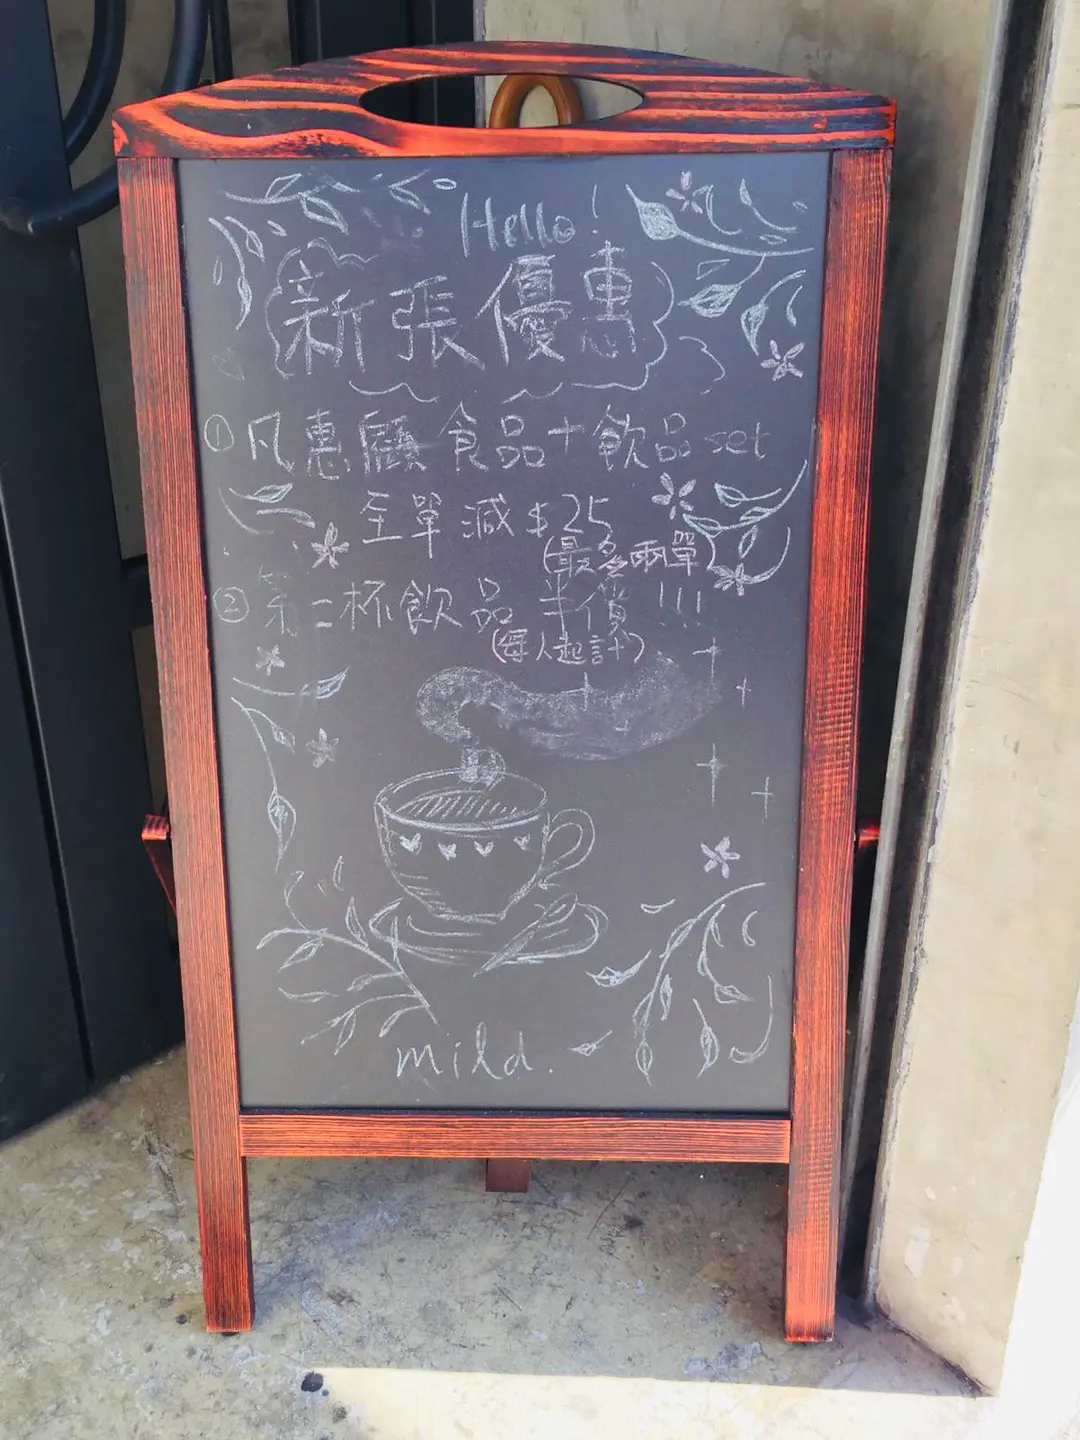 Hello!
新張優惠
① 凡惠顧食品+飲品set
全單減$25
(最多兩單)
② 第二杯飲品 半價!!!
(每人起計)
mild.